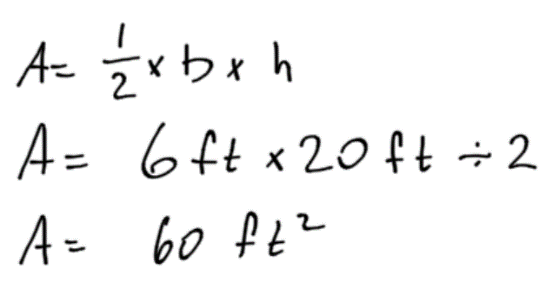 A = 1/2 × b × h
A = 6 ft × 20 ft ÷ 2
A = 60 ft²